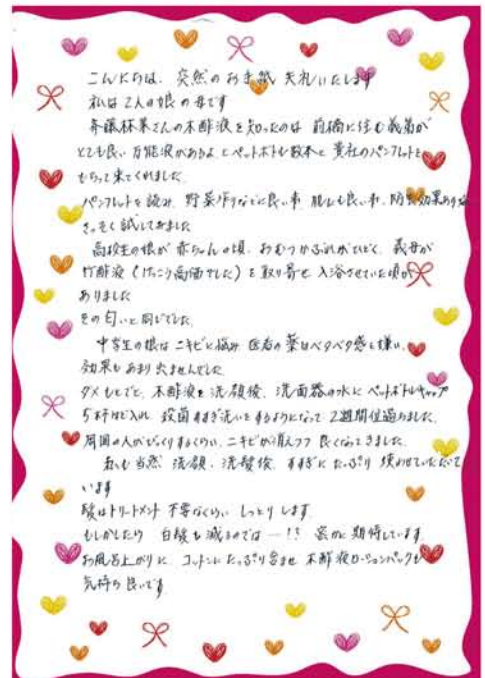 こんにちは、突然のお手紙 失礼いたします
私は2人の娘の母です
斉藤林業さんの木酢液を知ったのは 前橋に住む義弟が
とても良い万能液があるよ とペットボトル数本と貴社のパンフレットを
もらって来てくれました。
パンフレットを読み、野菜作りなどに良い事、肌にも良い事、防虫効果あり
さっそく試してみました
高校生の娘が赤ちゃんの頃、おむつかぶれがひどく、義母が
竹酢液(けっこう高価でした)を取り寄せ 入浴させていた頃が
ありました
その匂いと同じでした。
中学生の娘は ニキビに悩み 医者の薬はベタベタ感を嫌い、
効果もあまり出ませんでした
ダメもとでと、木酢液を洗顔後、洗面器の水に ペットボトルキャップ
5杯ほど入れ、殺菌すすぎ洗いをするようになって 2週間位過ぎました。
周囲の人がびっくりするくらい、ニキビが消えつつ 良くなってきました。
私も当然 洗顔、洗髪後、すすぎに たっぷり 使わせていただいて
います
髪はトリートメント 不要なくらい しっとり します。
もしかしたら 白髪も減るのでは―!? 密かに期待しています。
お風呂上がりに コットンに たっぷり含ませ 木酢液ローションパックも
気持ち良いです